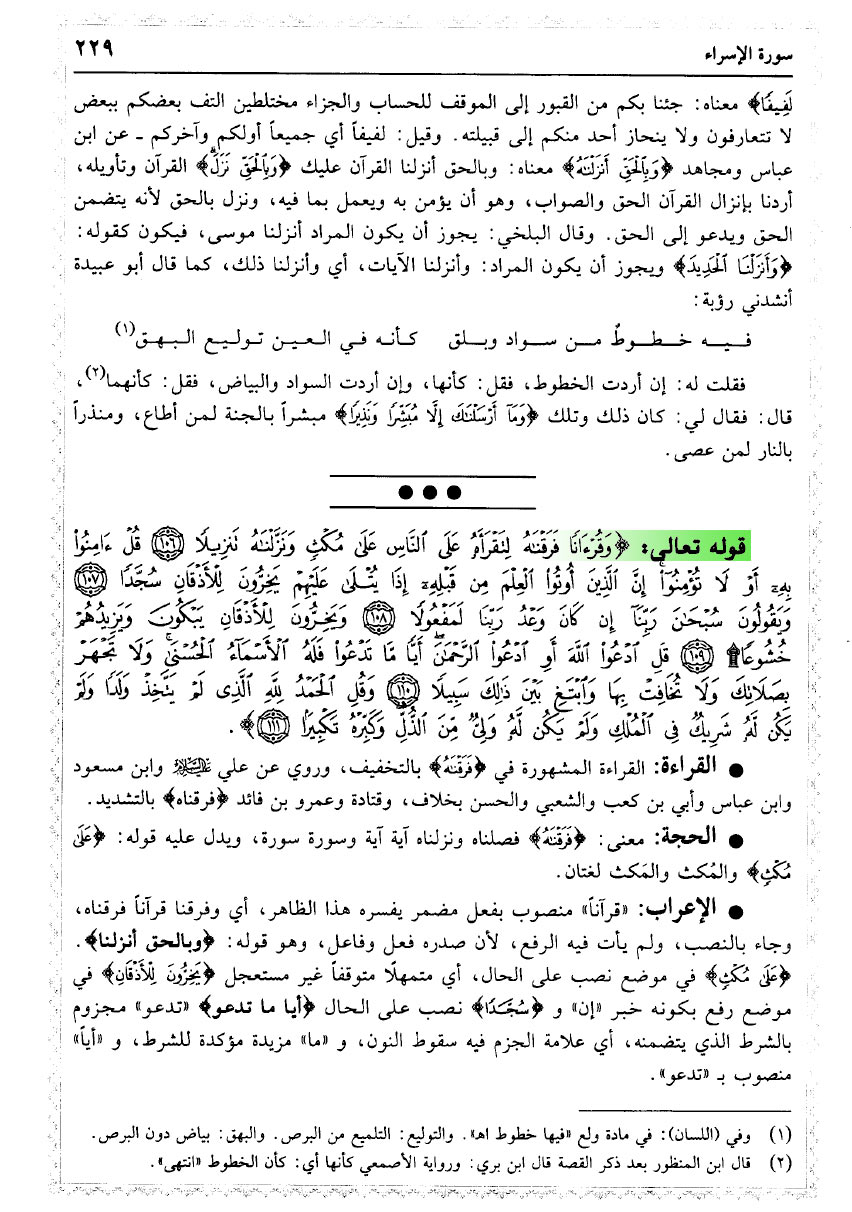 سورة الإسراء ٢٢٩
لَفِيفًا﴾ معناه: جئنا بكم من القبور إلى الموقف للحساب والجزاء مختلطين التف بعضكم ببعض
لا تتعارفون ولا ينحاز أحد منكم إلى قبيلته. وقيل: لفيفاً أي جميعاً أولكم وآخركم ـ عن ابن
عباس ومجاهد ﴿وَبِالْحَقِّ أَنزَلْنَاهُ﴾ معناه: وبالحق أنزلنا القرآن عليك ﴿وَبِالْحَقِّ نَزَلَ﴾ القرآن وتأويله،
أردنا بإنزال القرآن الحق والصواب، وهو أن يؤمن به ويعمل بما فيه، ونزل بالحق لأنه يتضمن
الحق ويدعو إلى الحق. وقال البلخي: يجوز أن يكون المراد أنزلنا موسى، فيكون كقوله:
﴿وَأَنزَلْنَا الْحَدِيدَ﴾ ويجوز أن يكون المراد: وأنزلنا الآيات، أي وأنزلنا ذلك، كما قال أبو عبيدة
أنشدني رؤبة:
فيه خطوطٌ من سواد وبلق كأنه في العين توليع البهق(١)
فقلت له: إن أردت الخطوط، فقل: كأنها، وإن أردت السواد والبياض، فقل: كأنهما(٢)،
قال: فقال لي: كان ذلك وتلك ﴿وَمَا أَرْسَلْنَاكَ إِلَّا مُبَشِّرًا وَنَذِيرًا﴾ مبشراً بالجنة لمن أطاع، ومنذراً
بالنار لمن عصى.
● ● ●
قوله تعالى: ﴿وَقُرْءَانًا فَرَقْنَاهُ لِتَقْرَأَهُ عَلَى النَّاسِ عَلَى مُكْثٍ وَنَزَّلْنَاهُ تَنزِيلًا ﴿١٠٦﴾ قُلْ ءَامِنُوا
بِهِ أَوْ لَا تُؤْمِنُوا إِنَّ الَّذِينَ أُوتُوا الْعِلْمَ مِن قَبْلِهِ إِذَا يُتْلَى عَلَيْهِمْ يَخِرُّونَ لِلْأَذْقَانِ سُجَّدًا ﴿١٠٧﴾
وَيَقُولُونَ سُبْحَانَ رَبِّنَا إِن كَانَ وَعْدُ رَبِّنَا لَمَفْعُولًا ﴿١٠٨﴾ وَيَخِرُّونَ لِلْأَذْقَانِ يَبْكُونَ وَيَزِيدُهُمْ
خُشُوعًا۩ ﴿١٠٩﴾ قُلِ ادْعُوا اللَّهَ أَوِ ادْعُوا الرَّحْمَنَ أَيًّا مَّا تَدْعُوا فَلَهُ الْأَسْمَاءُ الْحُسْنَى وَلَا تَجْهَرْ
بِصَلَاتِكَ وَلَا تُخَافِتْ بِهَا وَابْتَغِ بَيْنَ ذَلِكَ سَبِيلًا ﴿١١٠﴾ وَقُلِ الْحَمْدُ لِلَّهِ الَّذِي لَمْ يَتَّخِذْ وَلَدًا وَلَمْ
يَكُن لَّهُ شَرِيكٌ فِي الْمُلْكِ وَلَمْ يَكُن لَّهُ وَلِيٌّ مِّنَ الذُّلِّ وَكَبِّرْهُ تَكْبِيرًا ﴿١١١﴾﴾.
● القراءة: القراءة المشهورة في ﴿فَرَقْنَاهُ﴾ بالتخفيف، وروي عن علي عليه السلام وابن مسعود
وابن عباس وأبي بن كعب والشعبي والحسن بخلاف، وقتادة وعمرو بن فائد ﴿فرقناه﴾ بالتشديد.
● الحجة: معنى: ﴿فَرَقْنَاهُ﴾ فصلناه ونزلناه آية آية وسورة سورة، ويدل عليه قوله: ﴿عَلَى
مُكْثٍ﴾ والمُكث والمَكث لغتان.
● الإعراب: «قرآناً» منصوب بفعل مضمر يفسره هذا الظاهر، أي وفرقنا قرآناً فرقناه،
وجاء بالنصب، ولم يأت فيه الرفع، لأن صدره فعل وفاعل، وهو قوله: ﴿وبالحق أنزلنا﴾.
﴿عَلَى مُكْثٍ﴾ في موضع نصب على الحال، أي متمهلًا متوقفاً غير مستعجل ﴿يَخِرُّونَ لِلْأَذْقَانِ﴾ في
موضع رفع بكونه خبر «إن» و ﴿سُجَّدًا﴾ نصب على الحال ﴿أيا ما تدعو﴾ «تدعو» مجزوم
بالشرط الذي يتضمنه، أي علامة الجزم فيه سقوط النون، و «ما» مزيدة مؤكدة للشرط، و «أياً»
منصوب بـ «تدعو».
(١) وفي (اللسان): في مادة ولع «فيها خطوط اهـ». والتوليع: التلميع من البرص. والبهق: بياض دون البرص.
(٢) قال ابن المنظور بعد ذكر القصة قال ابن بري: ورواية الأصمعي كأنها أي: كأن الخطوط «انتهى».